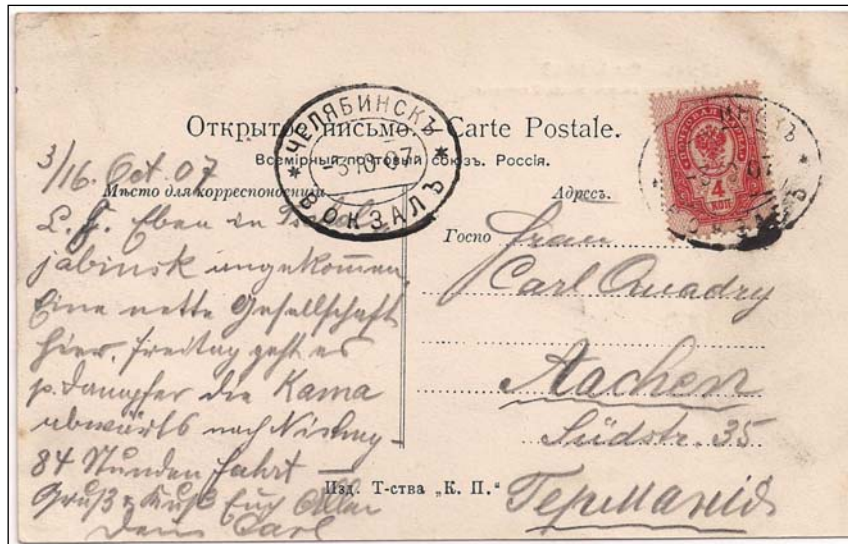 Открытое письмо. Carte Postale.
Всемірный почтовый союзъ. Россія.
ЧЕЛЯБИНСКЪ
-3 10 07
ВОКЗАЛЪ
4
КОП
Мѣсто для корреспонденціи
Адресъ.
3/16. Oct. 07
L. F. Eben in Tschel-
jabinsk angekommen.
Eine nette Gesellschaft
hier. Freitag geht es
p. Dampfer die Kama
abwärts nach Nishny-
84 Stunden Fahrt —
Gruß & Kuß Euch Allen
Dein Carl
Госпо Frau
Carl Quadry
Aachen
Südstr. 35
Германія
Изд. Т-ства „К. П.“